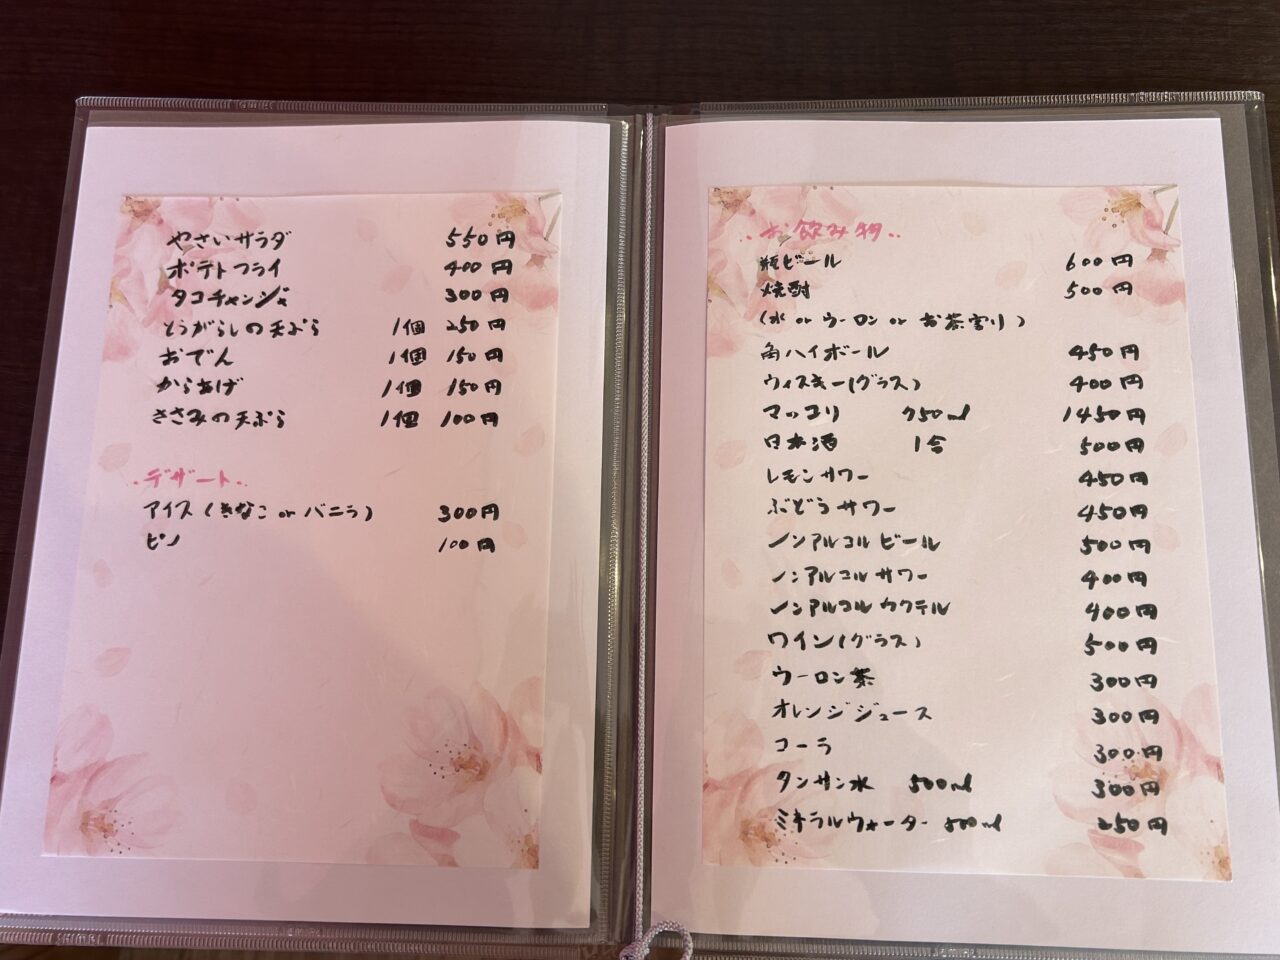 やさいサラダ 550円
ポテトフライ 400円
タコチャンジャ 300円
とうがらしの天ぷら 1個 250円
おでん 1個 150円
からあげ 1個 150円
ささみの天ぷら 1個 100円
・デザート・
アイス(きなこorバニラ) 300円
ピノ 100円
・・お飲み物・・
瓶ビール 600円
焼酎 500円
(水orウーロンorお茶割り)
角ハイボール 450円
ウィスキー(グラス) 400円
マッコリ 750ml 1450円
日本酒 1合 500円
レモンサワー 450円
ぶどうサワー 450円
ノンアルコルビール 500円
ノンアルコルサワー 400円
ノンアルコルカクテル 400円
ワイン(グラス) 500円
ウーロン茶 300円
オレンジジュース 300円
コーラ 300円
タンサン水 500ml 300円
ミネラルウォーター 500ml 250円